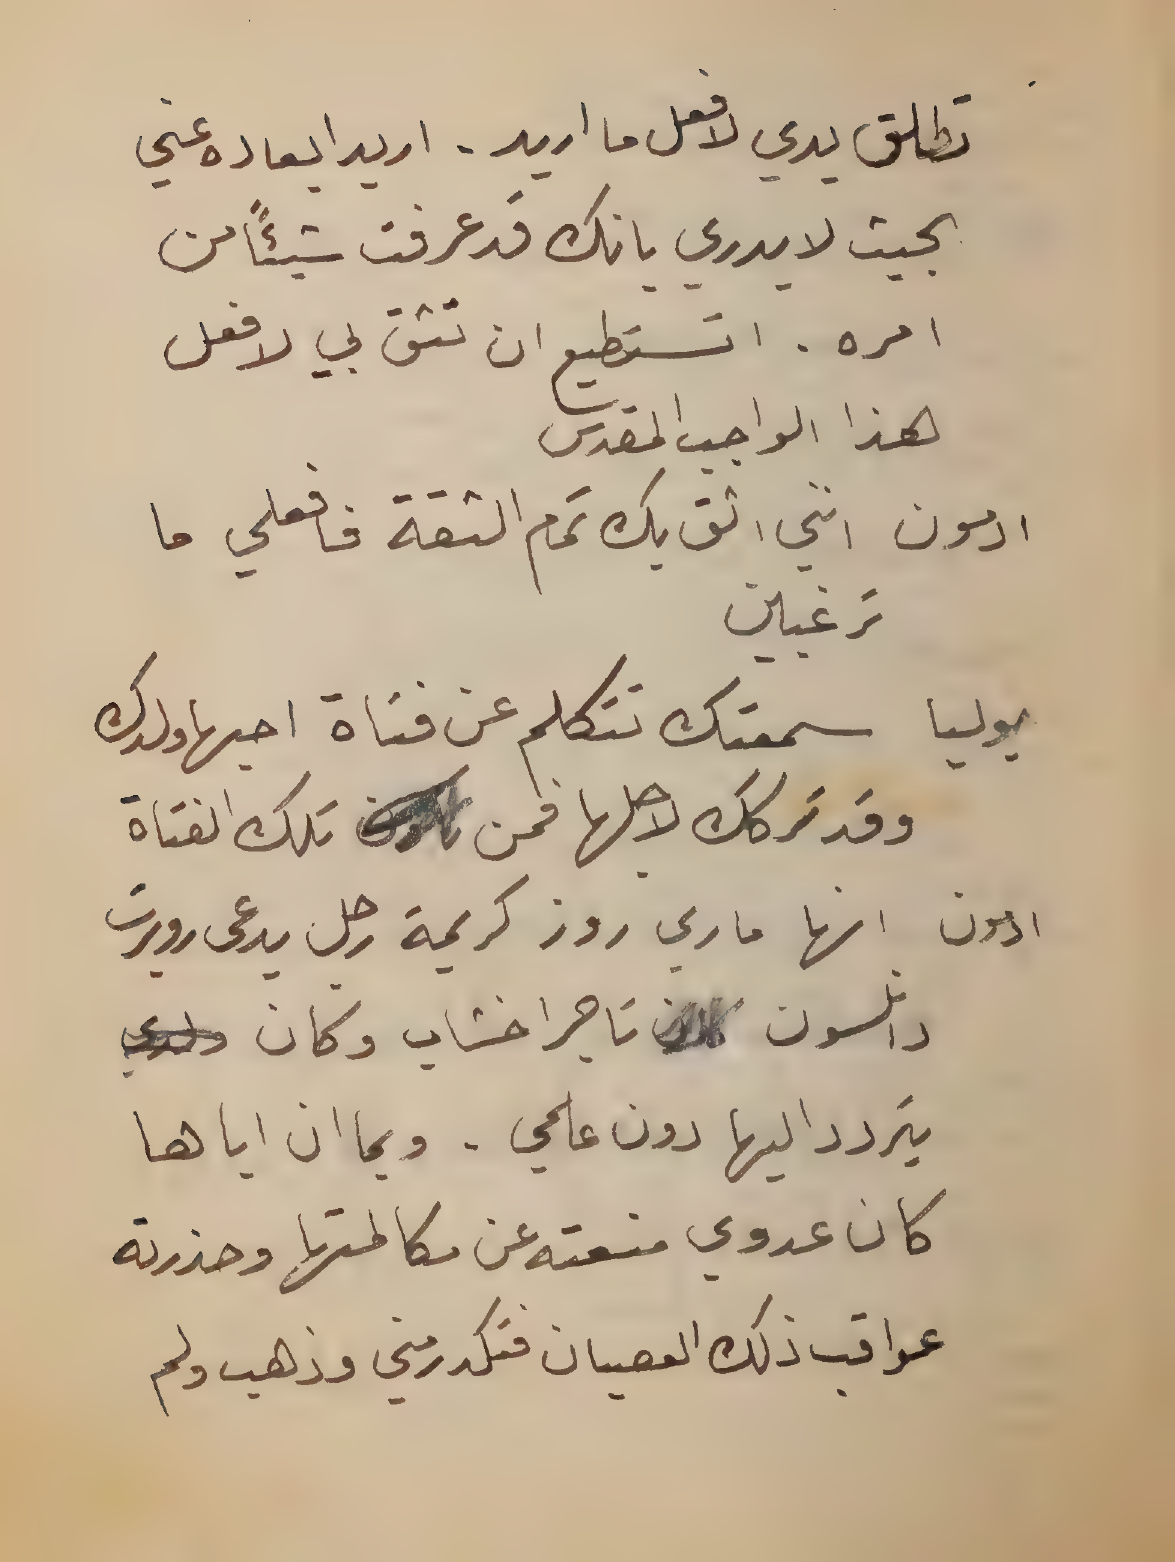 تطلق يدي لافعل ما اريد . اريد ابعاده عني
بحيث لا يدري بانك قد عرفت شيئًا من
امره . اتستطيع ان تثق بي لافعل
هذا الواجب المقدس
ادمون انني اثق بك تمام الثقة فافعلي ما
ترغبين
يوليا سمعتك تتكلم عن فتاة احبها ولدك
وقد تركك لاجلها فمن تلك الفتاة
ادمون انها ماري روز كريمة رجل يدعى روبرت
دانلسون تاجر اخشاب وكان
يتردد اليها دون علمي . وبما ان اباها
كان عدوي منعته عن مكالمتها وحذرته
عواقب ذلك العصيان فتكدر مني وذهب ولم